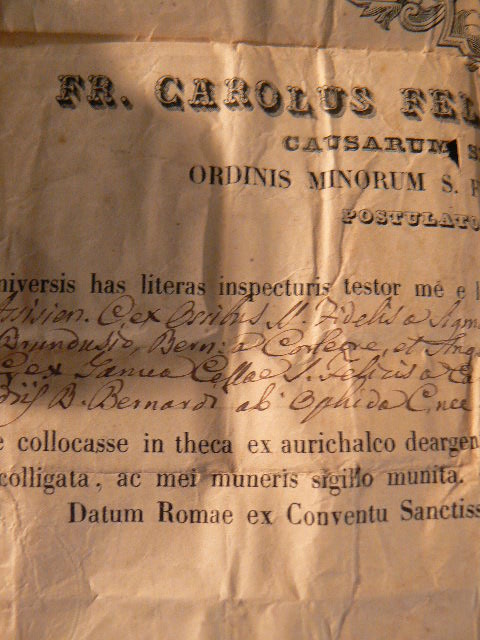 FR. CAROLUS FEL
CAUSARUM S
ORDINIS MINORUM S. F
POSTULATO
niversis has literas inspecturis testor me e
Assisien. C. ex Ossibus S. Fidelis a Sigm
Brundusio, Bern: a Corleone, et Ang
C. ex Janua Cellae S. Felicis a Ca
B. Bernardi ab Ophida C. nec
e collocasse in theca ex aurichalco deargen
colligata, ac mei muneris sigillo munita.
Datum Romae ex Conventu Sanctiss